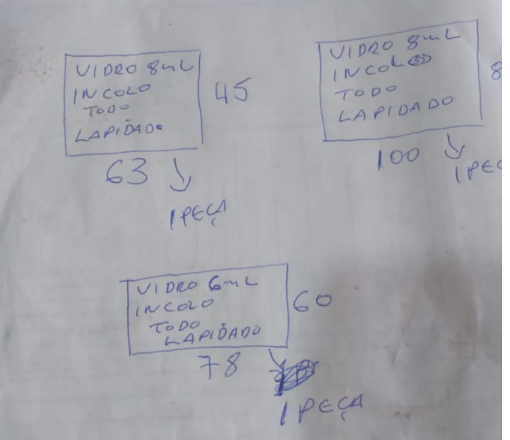 VIDRO 8mL
INCOLO
TODO
LAPIDADO
45
63
1 PEÇA
VIDRO 8mL
INCOLO
TODO
LAPIDADO
8
100
1 PEÇ
VIDRO 6mL
INCOLO
TODO
LAPIDADO
60
78
1 PEÇA